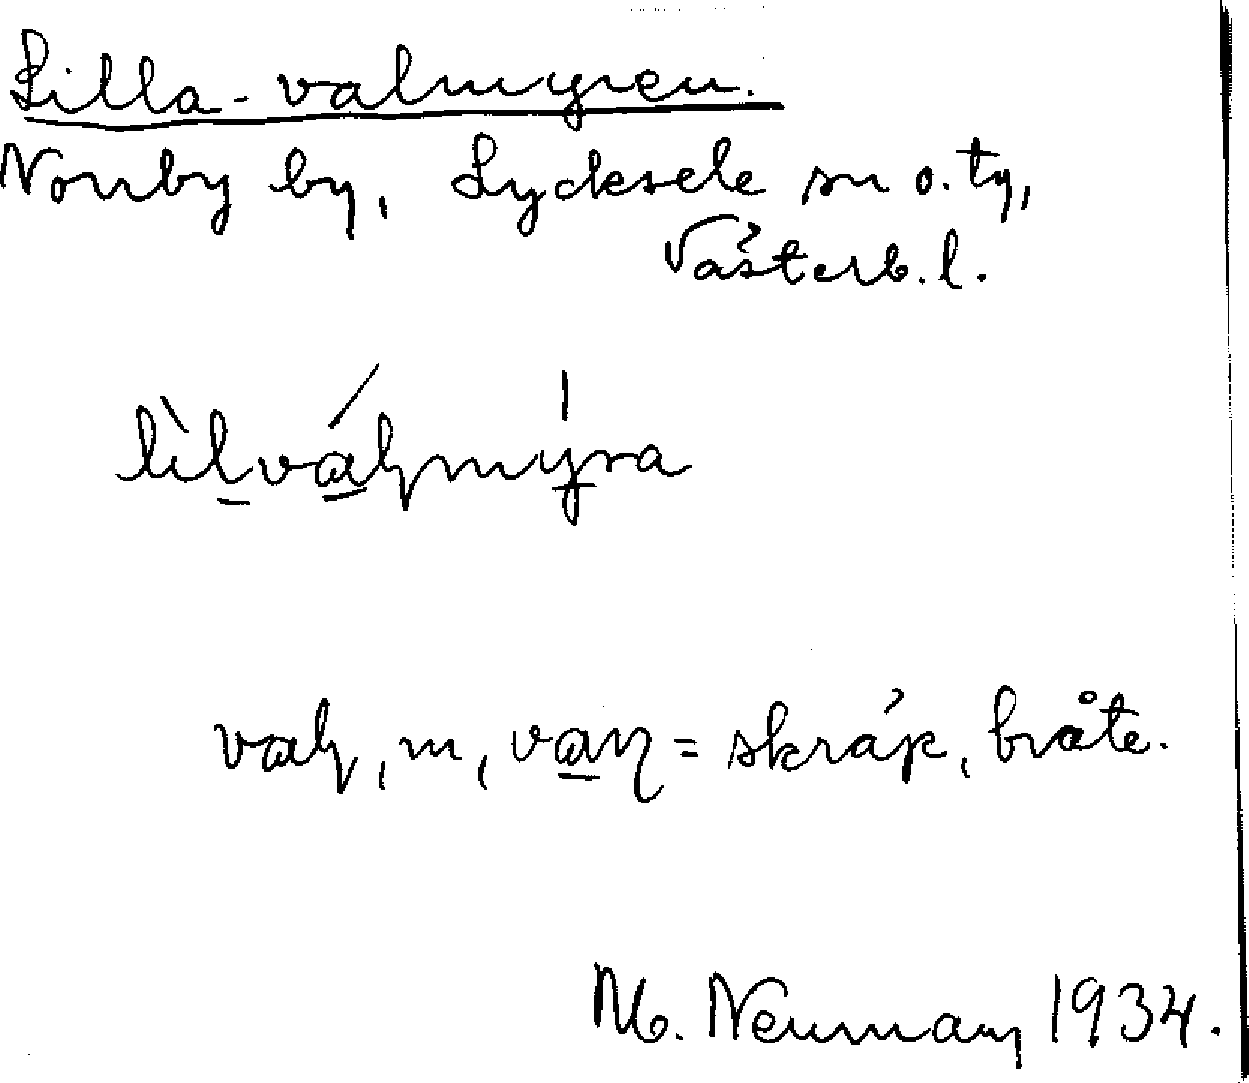 Lilla-valmyren.
Norrby by, Lycksele sn o. tg,
Västerb. l.
lìlválmy̵ra
val, m, van = skräp, bråte.
M. Neuman 1934.